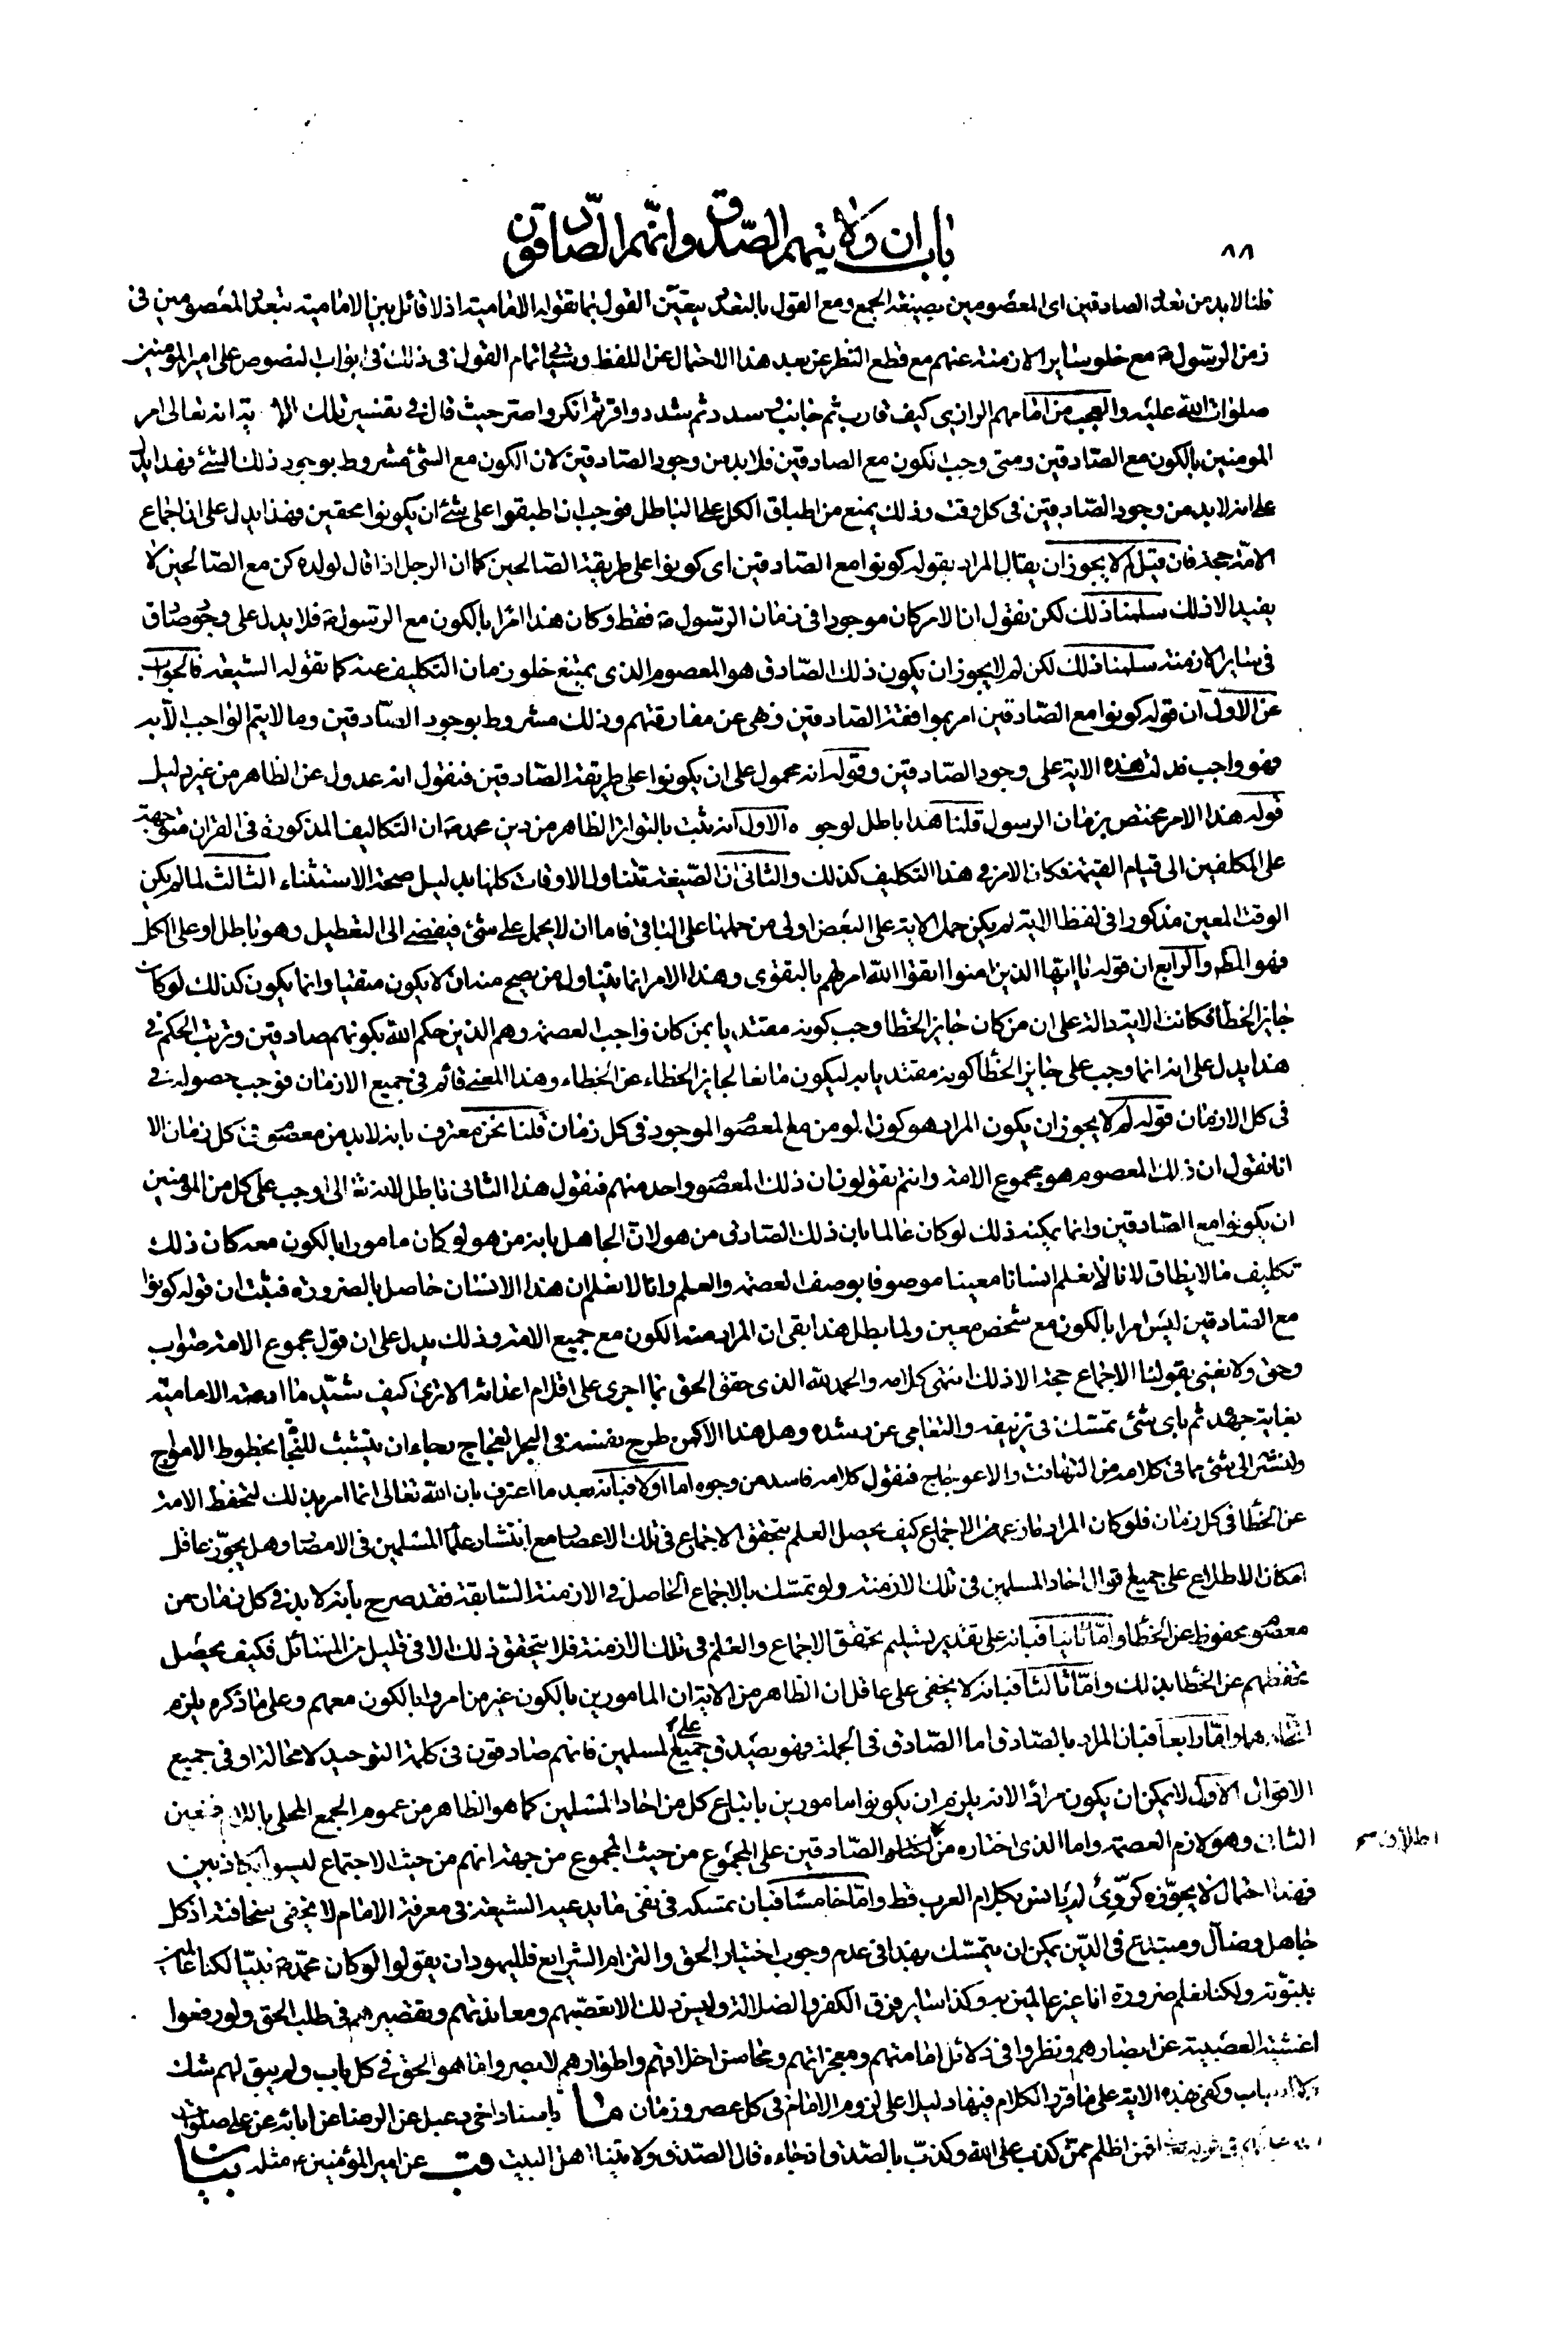 ٨٨
باب ان ولايتهم الصدق وانّهم الصّادقون
قلنا لابد من تعدد الصادقين اى المعصومين بصيغة الجمع ومع القول بالتعدد يتعيّن القول بما تقوله الامامية اذ لا قائل بين الامامية بتعدد المعصومين فى
زمن الرسول ص مع خلو ساير الازمنة عنهم مع قطع النظر عن بعد هذا الاحتمال عن اللفظ وسيأتى اتمام القول فى ذلك فى ابواب النصوص على امير المومنين
صلوات الله عليه والعجب من امامهم الرازى كيف قارب ثم جانب وسدد ثم شدد واقر ثم انكر واصر حيث قال فى تفسير تلك الاية انه تعالى امر
المومنين بالكون مع الصّادقين ومتى وجب الكون مع الصادقين فلابد من وجود الصّادقين لان الكون مع الشئ مشروط بوجود ذلك الشئ فهذا يدل
على انه لابد من وجود الصّادقين فى كل وقت وذلك يمنع من اطباق الكل على الباطل فوجب ان اطبقوا على شئ ان يكونوا محقين فهذا يدل على ان اجماع
الامّة حجة فان قيل لم لا يجوز ان يقال المراد بقوله كونوا مع الصّادقين اى كونوا على طريقة الصّالحين كما ان الرجل اذا قال لولده كن مع الصّالحين لا
يفيد الا ذلك سلمنا ذلك لكن نقول ان الامر كان موجودا فى زمان الرّسول ص فقط وكان هذا امرا بالكون مع الرّسول ص فلا يدل على وجود صادق
فى ساير الازمنة سلمنا ذلك لكن لم لا يجوز ان يكون ذلك الصّادق هو المعصوم الذى يمتنع خلو زمان التكليف عنه كما تقوله الشيعة فالجواب
عن الاول ان قوله كونوا مع الصّادقين امر بموافقة الصّادقين ونهى عن مفارقتهم وذلك مشروط بوجود الصّادقين وما لا يتم الواجب الّا به
فهو واجب فدلت هذه الاية على وجود الصّادقين وقوله انه محمول على ان يكونوا على طريقة الصّادقين فنقول انه عدول عن الظاهر من غير دليل
قوله هذا الامر مختص بزمان الرسول قلنا هذا باطل لوجوه الاول انه ثبت بالتواتر الظاهر من دين محمد ص ان التكاليف المذكورة فى القران متوجهة
على المكلفين الى قيام القيمة فكان الامر فى هذا التكليف كذلك والثانى ان الصّيغة تتناول الاوقات كلها بدليل صحة الاستثناء الثالث لما لم يكن
الوقت المعين مذكورا فى لفظ الاية لم يكن حمل الاية على البعض اولى من حملها على الباقى فاما ان لا يحمل على شئ فيفضى الى التعطيل وهو باطل او على الكل
فهو المط والرابع ان قوله يا ايها الذين امنوا اتقوا الله امر لهم بالتقوى وهذا الامر انما يتناول من يصح منه ان لا يكون متقيا وانما يكون كذلك لو كان
جايز الخطأ فكانت الاية دالة على ان من كان جايز الخطأ وجب كونه مقتديا بمن كان واجب العصمة وهم الذين حكم الله بكونهم صادقين وترتب الحكم فى
هذا يدل على انه انما وجب على جايز الخطأ كونه مقتديا به ليكون مانعا لجايز الخطاء عن الخطاء وهذا المعنى قائم فى جميع الازمان فوجب حصوله فى
فى كل الازمان قوله لم لا يجوز ان يكون المراد هو كون المومن مع المعصوم الموجود فى كل زمان قلنا نحن معترف بانه لابد من معصوم فى كل زمان الا
انا نقول ان ذلك المعصوم هو مجموع الامة وانتم تقولون ان ذلك المعصوم واحد منهم فنقول هذا الثانى باطل لانه تعالى اوجب على كل من المؤمنين
ان يكونوا مع الصّادقين وانما يمكنه ذلك لو كان عالما بان ذلك الصادق من هو لان الجاهل بانه من هو لو كان مامورا بالكون معه كان ذلك
تكليف ما لا يطاق لانا لا نعلم انسانا معينا موصوفا بوصف العصمة والعلم وانا لا نعلم ان هذا الانسان حاصل بالضرورة فثبت ان قوله كونوا
مع الصّادقين ليس امرا بالكون مع شخص معين ولما بطل هذا بقى ان المراد منه الكون مع جميع الامة وذلك يدل على ان قول مجموع الامة صواب
وحق ولا نعنى بقولنا الاجماع حجة الا ذلك انتهى كلامه والحمد لله الذى حقق الحق بما اجرى على اقلام اعدائه الا ترى كيف شيّد ما ادعته الامامية
بغاية جهده ثم باى شئ تمسّك فى تزييفه والتعامى عن رشده وهل هذا الا كمن طرح نفسه فى البحر العجاج رجاء ان يتشبث للنجاة بخطوط الامواج
ولنشر الى شئ مما فى كلامه من التهافت والاعوجاج فنقول كلامه فاسد من وجوه اما اولا فبانه بعد ما اعترف بان الله تعالى انما امر بذلك لتحفظ الامة
عن الخطأ فى كل زمان فلو كان المراد ما زعمه من الاجماع كيف يحصل العلم بتحقق الاجماع فى تلك الاعصار مع انتشار علماء المسلمين فى الامصار وهل يجوّز عاقل
امكان الاطلاع على جميع اقوال احاد المسلمين فى تلك الازمنة ولو تمسّك بالاجماع الحاصل فى الازمنة السّابقة فقد صرح بانه لابد فى كل زمان من
معصوم محفوظ عن الخطأ وامّا ثانيا فبانه على تقدير تسليم تحقق الاجماع والعلم فى تلك الازمنة فلا يتحقق ذلك الا فى قليل من المسائل فكيف يحصل
تحفظهم عن الخطأ بذلك وامّا ثالثا فبانه لا يخفى على عاقل ان الظاهر من الاية ان المامورين بالكون غير من امروا بالكون معهم وعلى ما ذكره يلزم
اتحادهما وامّا رابعا فبان المراد بالصّادق اما الصّادق فى الجملة فهو يصدق على جميع المسلمين فانهم صادقون فى كلمة التوحيد لا محالة او فى جميع
الاقوال الاول لا يمكن ان يكون مرادا لانه يلزم ان يكونوا مامورين باتباع كل من احاد المسلمين كما هو الظاهر من عموم الجمع المحلى باللام فتعين
الثانى وهو لازم العصمة واما الذى اختاره من اطلاق الصّادقين على المجموع من حيث المجموع من جهة انهم من حيث الاجتماع ليسوا بكاذبين
اطلاق صح
فهذا احتمال لا يجوّزه كردىّ لم يانس بكلام العرب قط وامّا خامسا فبان تمسكه فى نفى ما يدعيه الشيعة فى معرفة الامام لا يخفى سخافته اذ كل
جاهل وضال ومبتدع فى الدّين يمكن ان يتمسّك بهذا فى عدم وجوب اختيار الحق والتزام الشرايع فلليهود ان يقولوا لو كان محمد ص نبيّا لكنا عالمين
بنبوّته ولكنا نعلم ضرورة انا غير عالمين به وكذا ساير فرق الكفر والضلالة وليس ذلك الا لتعصّبهم ومعاندتهم وتقصيرهم فى طلب الحق ولو رفعوا
اغشية العصبية عن ابصارهم ونظروا فى دلائل امامتهم ومعجزاتهم ومحاسن اخلاقهم واطوارهم لابصروا ما هو الحق فى كل باب ولم يبق لهم شك
ولا ارتياب وكفى بهذه الاية على ما قرر الكلام فيها دليلا على لزوم الامام فى كل عصر وزمان ما باسناد اخى دعبل عن الرضا عن ابائه عن على صلوات
الله عليهم فى قوله تعالى فمن اظلم ممّن كذب على الله وكذّب بالصّدق اذ جاءه قال الصّدق ولايتنا اهل البيت قب عن امير المؤمنين ع مثله بيان